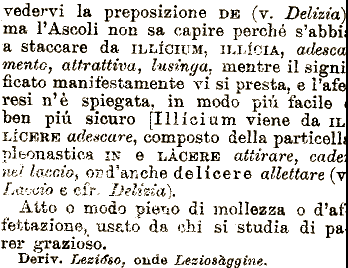 vedervi la preposizione DE (v. Delizia)
ma l'Ascoli non sa capire perché s'abbi
a staccare da ILLÍCIUM, ILLÍCIA, adesca
mento, attrattiva, lusinga, mentre il signi
ficato manifestamente vi si presta, e l'afe
resi n'è spiegata, in modo piú facile
ben piú sicuro [Illícium viene da IL
LÍCERE adescare, composto della particell
pleonastica IN e LÀCERE attirare, cade
nel laccio, ond'anche delicere allettare (v
Laccio e cfr. Delizia).
Atto o modo pieno di mollezza o d'af
fettazione, usato da chi si studia di pa
rer grazioso.
Deriv. Lezióso, onde Leziosàggine.